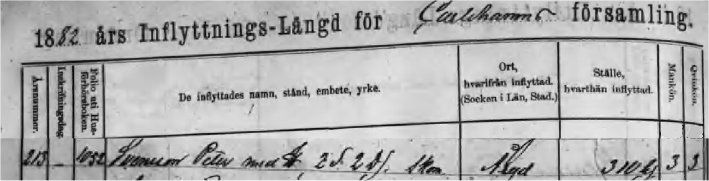 1882 års Inflyttnings-Längd för Carlshamns församling.
Årsnummer.
Inskrifningsdag.
Folio uti Hus-
förhörsboken.
De inflyttades namn, stånd, embete, yrke.
Ort,
hvarifrån inflyttad.
(Socken i Län, Stad.)
Ställe,
hvarthän inflyttad.
Mankön.
Qvinkön.
213 – 1052 Svensson Peter med H. 2 S. 2 D. Asyd 310 3 3